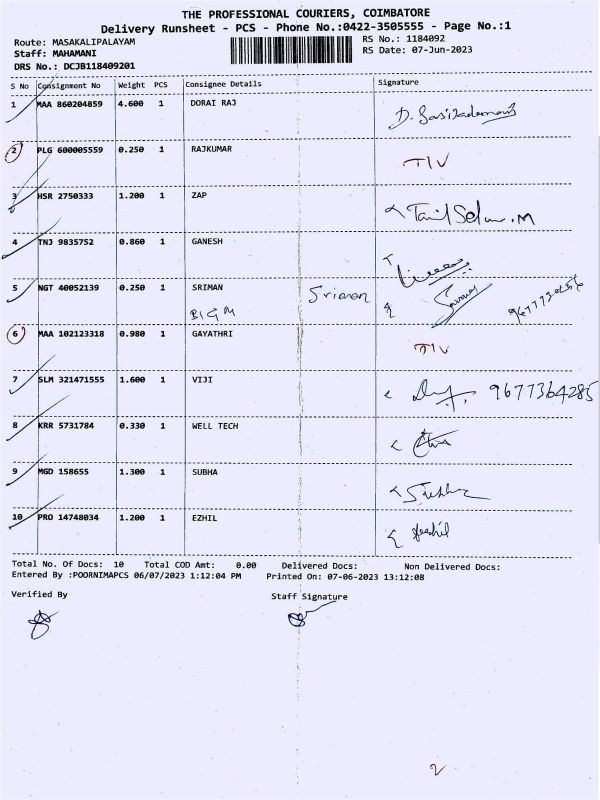 THE PROFESSIONAL COURIERS, COIMBATORE
Delivery Runsheet - PCS - Phone No.:0422-3505555 - Page No.:1
Route: MASAKALIPALAYAM
RS No.: 1184092
Staff: MAHAMANI
RS Date: 07-Jun-2023
DRS No.: DCJB118409201
S No Consignment No Weight PCS Consignee Details Signature
1 MAA 860204859 4.600 1 DORAI RAJ
2 PLG 600005559 0.250 1 RAJKUMAR TIV
3 HSR 2750333 1.200 1 ZAP Tamil Selvan.M
4 TNJ 9835752 0.860 1 GANESH
5 NGT 40052139 0.250 1 SRIMAN Sriman
6 MAA 102123318 0.980 1 GAYATHRI TIV
7 SLM 321471555 1.600 1 VIJI 9677364285
8 KRR 5731784 0.330 1 WELL TECH
9 MGD 158655 1.300 1 SUBHA
10 PRO 14748034 1.200 1 EZHIL
Total No. Of Docs: 10 Total COD Amt: 0.00 Delivered Docs: Non Delivered Docs:
Entered By :POORNIMAPCS 06/07/2023 1:12:04 PM Printed On: 07-06-2023 13:12:08
Verified By Staff Signature
2